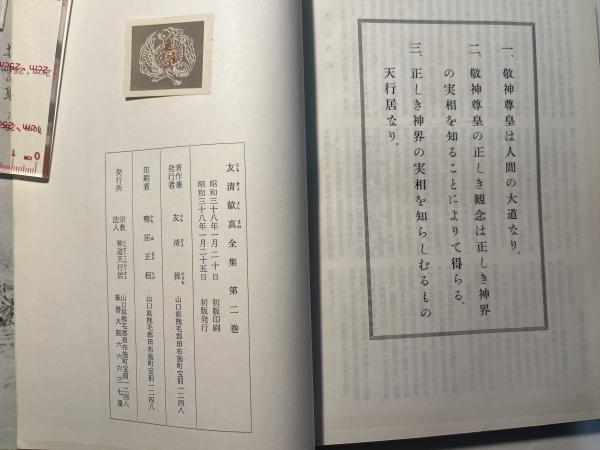 一、敬神尊皇は人間の大道なり。
二、敬神尊皇の正しき観念は正しき神界
の実相を知ることによりて得らる。
三、正しき神界の実相を知らしむるもの
天行居なり。
友清歓真全集 第二巻
昭和三十八年一月二十日 初版印刷
昭和三十八年一月二十五日 初版発行
著作兼
発行者 友清操
山口県熊毛郡田布施町宝前一二四八
印刷者 鴨居正桓
山口県熊毛郡田布施町宝前一二四八
発行所 宗教
法人 神道天行居
山口県熊毛郡田布施町宝前一二四八
振替大阪六六六三七番